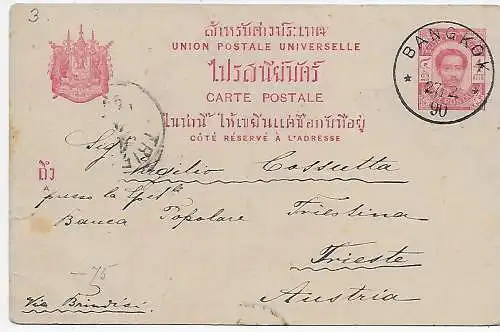 3.
สำหรับต่างประเทศ
UNION POSTALE UNIVERSELLE
ไปรสนียบัตร์
CARTE POSTALE
ในน่านี้ ให้เขียนแต่ชื่อกับที่อยู่
CÔTÉ RÉSERVÉ À L'ADRESSE
BANGKOK
27 2
90
TRIE
ถึง
A
Sig. Virgilio Cossutta
presso la Spett
Banca Popolare Triestina
Trieste
Austria
-75
Via Brindisi.